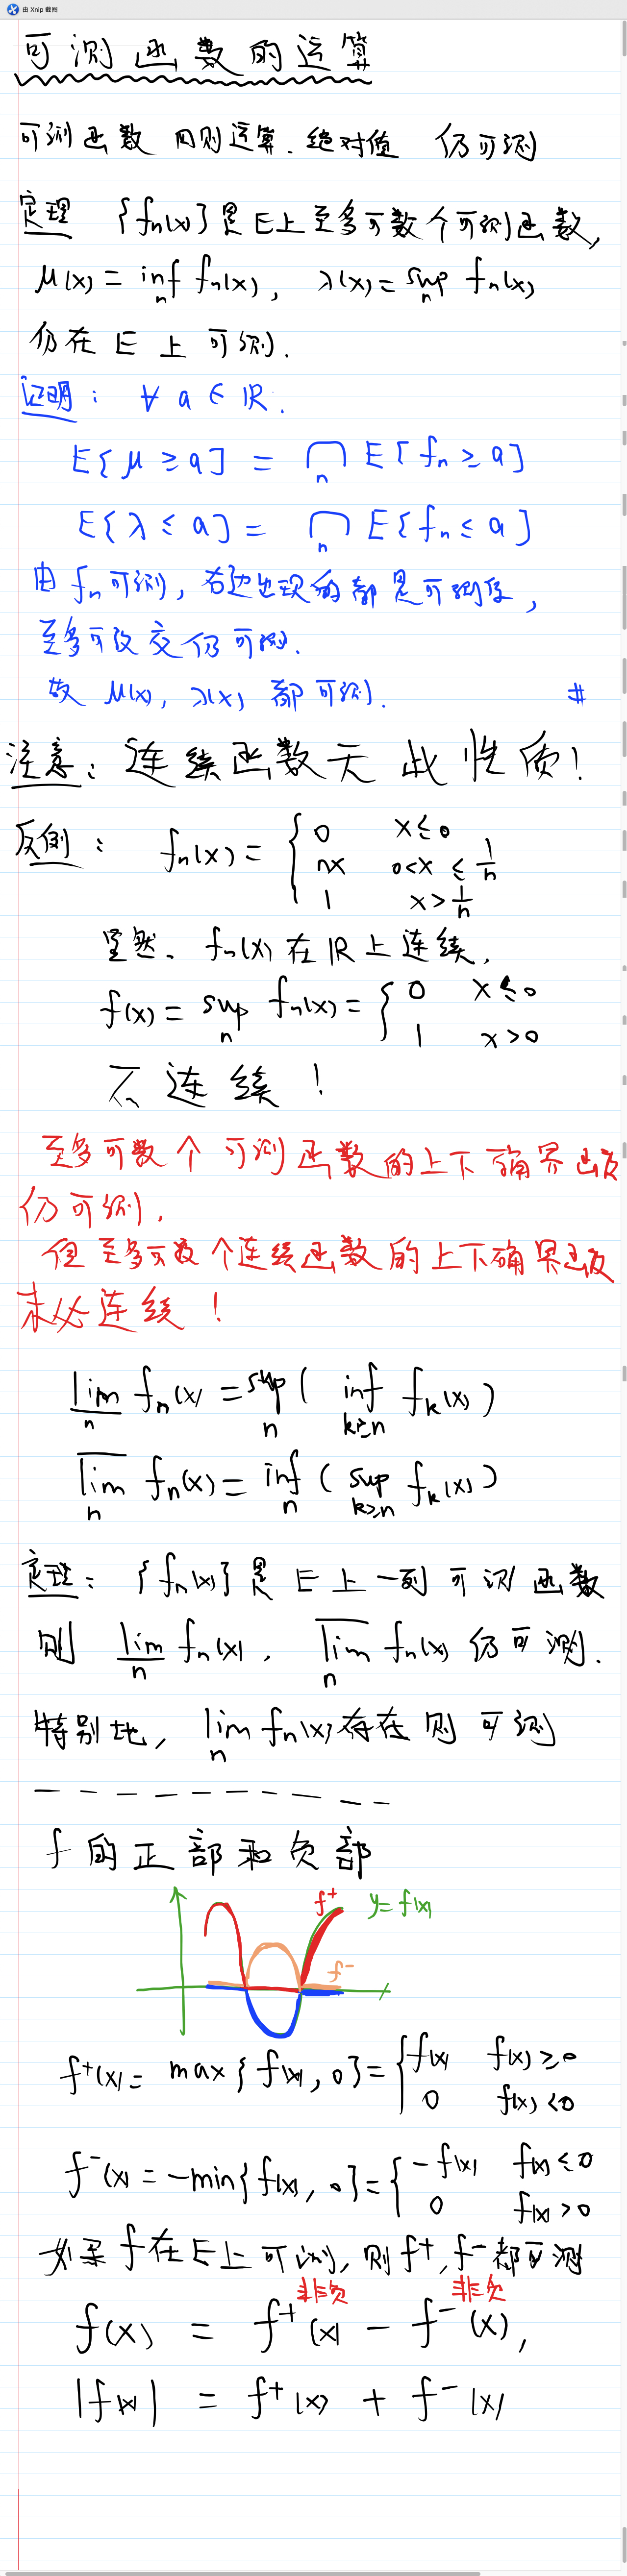 由 Xnip 截图
可测函数的运算
可测函数 四则运算、绝对值 仍可测
定理 {fₙ(x)}是E上至多可数个可测函数,
μ(x) = inf_n fₙ(x), λ(x) = sup_n fₙ(x)
仍在 E 上可测.
证明: ∀ a ∈ ℝ.
E{μ ≥ a} = ⋂_n E{fₙ ≥ a}
E{λ ≤ a} = ⋂_n E{fₙ ≤ a}
由 fₙ 可测, 右边出现的都是可测集,
至多可数交仍可测.
故 μ(x), λ(x) 都可测. #
注意: 连续函数无此性质!
反例: fₙ(x) = { 0 x ≤ 0
nx 0 < x ≤ 1/n
1 x > 1/n
显然、fₙ(x) 在 ℝ 上连续,
f(x) = sup_n fₙ(x) = { 0 x ≤ 0
1 x > 0
不连续!
至多可数个可测函数的上下确界函数
仍可测,
但至多可数个连续函数的上下确界函数
未必连续!
\underline{lim}_n fₙ(x) = sup_n ( inf_{k≥n} f_k(x) )
\overline{lim}_n fₙ(x) = inf_n ( sup_{k≥n} f_k(x) )
定理: {fₙ(x)} 是 E 上一列可测函数
则 \underline{lim}_n fₙ(x), \overline{lim}_n fₙ(x) 仍可测.
特别地, lim_n fₙ(x) 存在则可测
f 的正部和负部
f⁺ y = f(x)
f⁻
f⁺(x) = max{f(x), 0} = { f(x) f(x) ≥ 0
0 f(x) < 0
f⁻(x) = -min{f(x), 0} = { -f(x) f(x) ≤ 0
0 f(x) > 0
如果 f 在 E 上可测, 则 f⁺, f⁻ 都可测
非负 非负
f(x) = f⁺(x) - f⁻(x),
|f(x)| = f⁺(x) + f⁻(x)